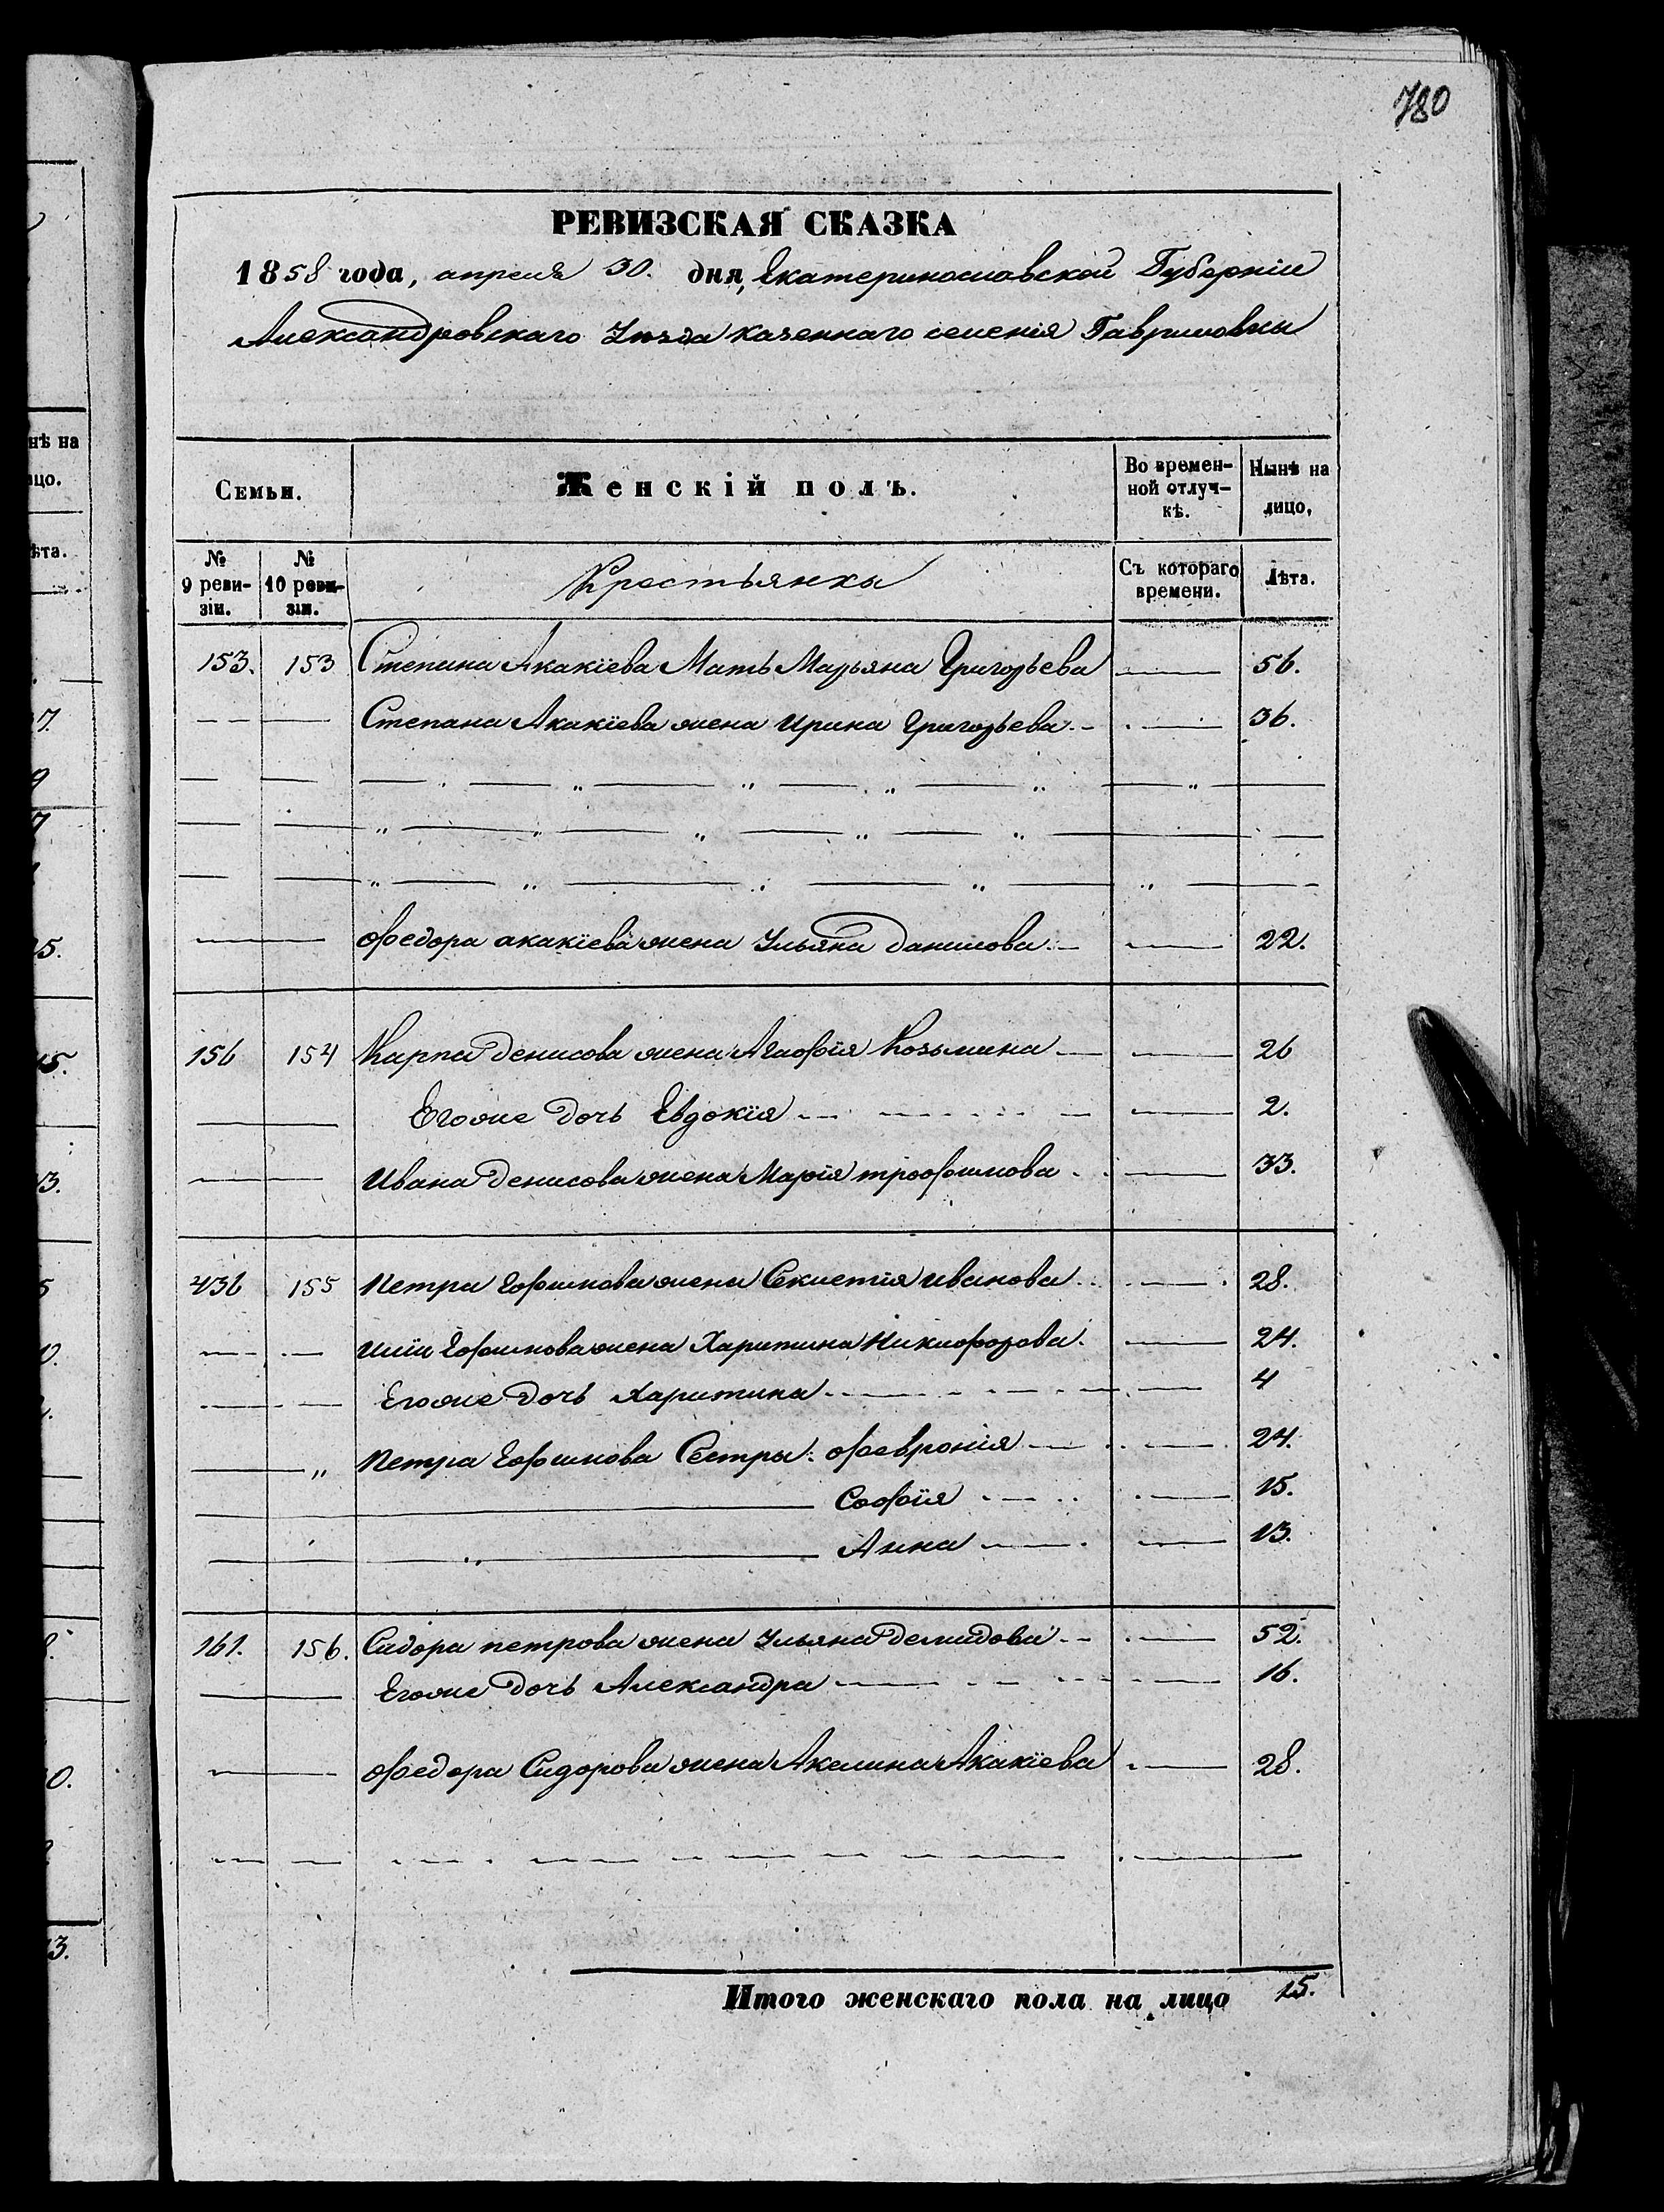 780
РЕВИЗСКАЯ СКАЗКА
1858 года, апреля 30. дня, Екатеринославской Губерніи
Александровскаго Уѣзда казеннаго селенія Гавриловки
Семьи. Женскій полъ. Во времен-ной отлуч-кѣ. Нынѣ на лицо,
№ 9 реви-зіи. № 10 реви-зіи. Крестьянки Съ котораго времени. Лѣта.
153. 153 Степана Акакіева Мать Марьяна Григорьева 56.
Степана Акакіева жена Ирина Григорьева 36.
Федора акакіева жена Ульяна данилова 22.
156 154 Карпа Денисова жена Агафія Козьмина 26
Егоже Дочь Евдокія 2.
Ивана Денисова жена Марія трофимова 33.
436 155 Петра Ефимова жена иванова 28.
Иліи Ефимова жена Харитина Никифорова 24.
Егоже Дочь Харитина 4
Петра Ефимова Сестры: Февронія 24.
Софія 15.
Анна 13.
161. 156. Сидора петрова жена Ульяна Демидова 52.
Егоже Дочь Александра 16.
Федора Сидорова жена Акилина Акакіева 28.
Итого женскаго пола на лицо 15.
нѣ на
ицо.
ѣта.